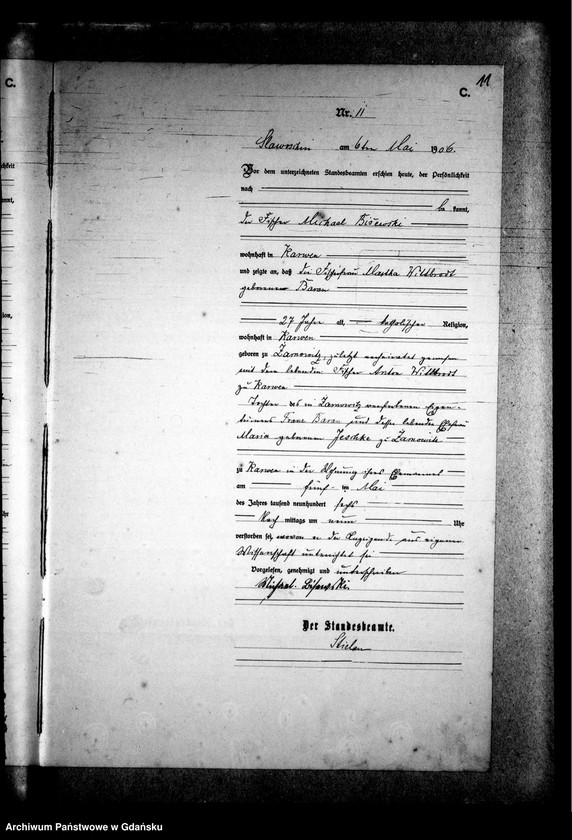 C.
C.
11
Nr. 11
Slawoschin am 6ten Mai 1906.
Vor dem unterzeichneten Standesbeamten erschien heute, der Persönlichkeit
nach
be kannt,
der Fischer Michael Bisewski
wohnhaft in Karwen
und zeigte an, daß die Fischerfrau Martha Wittbrodt
geborene Baran
27 Jahre alt, katholischer Religion,
wohnhaft in Karwen
geboren zu Zarnowitz, zuletzt verheiratet gewesen
mit dem lebenden Fischer Anton Wittbrodt
zu Karwen
Tochter des in Zarnowitz verstorbenen Eigen-
tümers Franz Baran und dessen lebenden Ehefrau
Maria geborenen Jeschke zu Zarnowitz
zu Karwen in der Wohnung ihres Ehemannes
am fünf ten Mai
des Jahres tausend neunhundert sechs
Nach mittags um neun Uhr
verstorben sei, wovon er der Anzeigende aus eigener
Wissenschaft unterrichtet sei
Vorgelesen, genehmigt und unterschrieben
Michael Bisewski.
Der Standesbeamte.
Archiwum Państwowe w Gdańsku